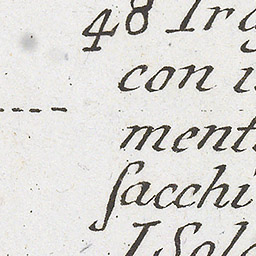 48 Irg
con i
ment
ſacchi
I Sol